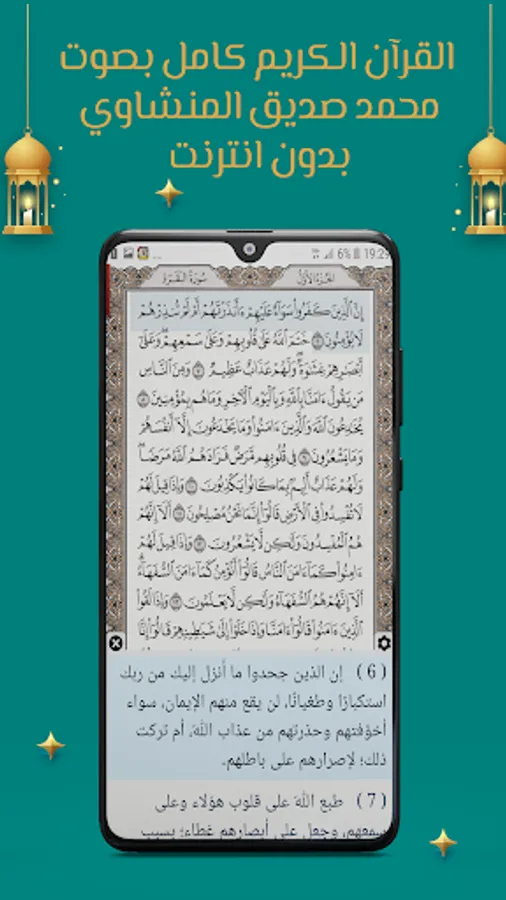 القرآن الكريم كامل بصوت
محمد صديق المنشاوي
بدون انترنت
6% 19:29
سُورَةُ البَقَرَة
الجُزءُ الأَوَّل
إِنَّ ٱلَّذِينَ كَفَرُوا۟ سَوَآءٌ عَلَيْهِمْ ءَأَنذَرْتَهُمْ أَمْ لَمْ تُنذِرْهُمْ
لَا يُؤْمِنُونَ ٦ خَتَمَ ٱللَّهُ عَلَىٰ قُلُوبِهِمْ وَعَلَىٰ سَمْعِهِمْ ۖ وَعَلَىٰٓ
أَبْصَٰرِهِمْ غِشَٰوَةٌ ۖ وَلَهُمْ عَذَابٌ عَظِيمٌ ٧ وَمِنَ ٱلنَّاسِ
مَن يَقُولُ ءَامَنَّا بِٱللَّهِ وَبِٱلْيَوْمِ ٱلْءَاخِرِ وَمَا هُم بِمُؤْمِنِينَ ٨
يُخَٰدِعُونَ ٱللَّهَ وَٱلَّذِينَ ءَامَنُوا۟ وَمَا يَخْدَعُونَ إِلَّآ أَنفُسَهُمْ
وَمَا يَشْعُرُونَ ٩ فِى قُلُوبِهِم مَّرَضٌ فَزَادَهُمُ ٱللَّهُ مَرَضًا ۖ
وَلَهُمْ عَذَابٌ أَلِيمٌۢ بِمَا كَانُوا۟ يَكْذِبُونَ ١٠ وَإِذَا قِيلَ لَهُمْ
لَا تُفْسِدُوا۟ فِى ٱلْأَرْضِ قَالُوٓا۟ إِنَّمَا نَحْنُ مُصْلِحُونَ ١١ أَلَآ إِنَّهُمْ
هُمُ ٱلْمُفْسِدُونَ وَلَٰكِن لَّا يَشْعُرُونَ ١٢ وَإِذَا قِيلَ لَهُمْ
ءَامِنُوا۟ كَمَآ ءَامَنَ ٱلنَّاسُ قَالُوٓا۟ أَنُؤْمِنُ كَمَآ ءَامَنَ ٱلسُّفَهَآءُ ۗ
أَلَآ إِنَّهُمْ هُمُ ٱلسُّفَهَآءُ وَلَٰكِن لَّا يَعْلَمُونَ ١٣ وَإِذَا لَقُوا۟
ٱلَّذِينَ ءَامَنُوا۟ قَالُوٓا۟ ءَامَنَّا وَإِذَا خَلَوْا۟ إِلَىٰ شَيَٰطِينِهِمْ قَالُوٓا۟ إِنَّا
( 6 ) إن الذين جحدوا ما أنزل إليك من ربك
استكبارًا وطغيانًا، لن يقع منهم الإيمان، سواء
أخوَّفتهم وحذرتهم من عذاب الله، أم تركت
ذلك؛ لإصرارهم على باطلهم.
( 7 ) طبع الله على قلوب هؤلاء وعلى
سمعهم، وجعل على أبصارهم غطاء؛ بسبب